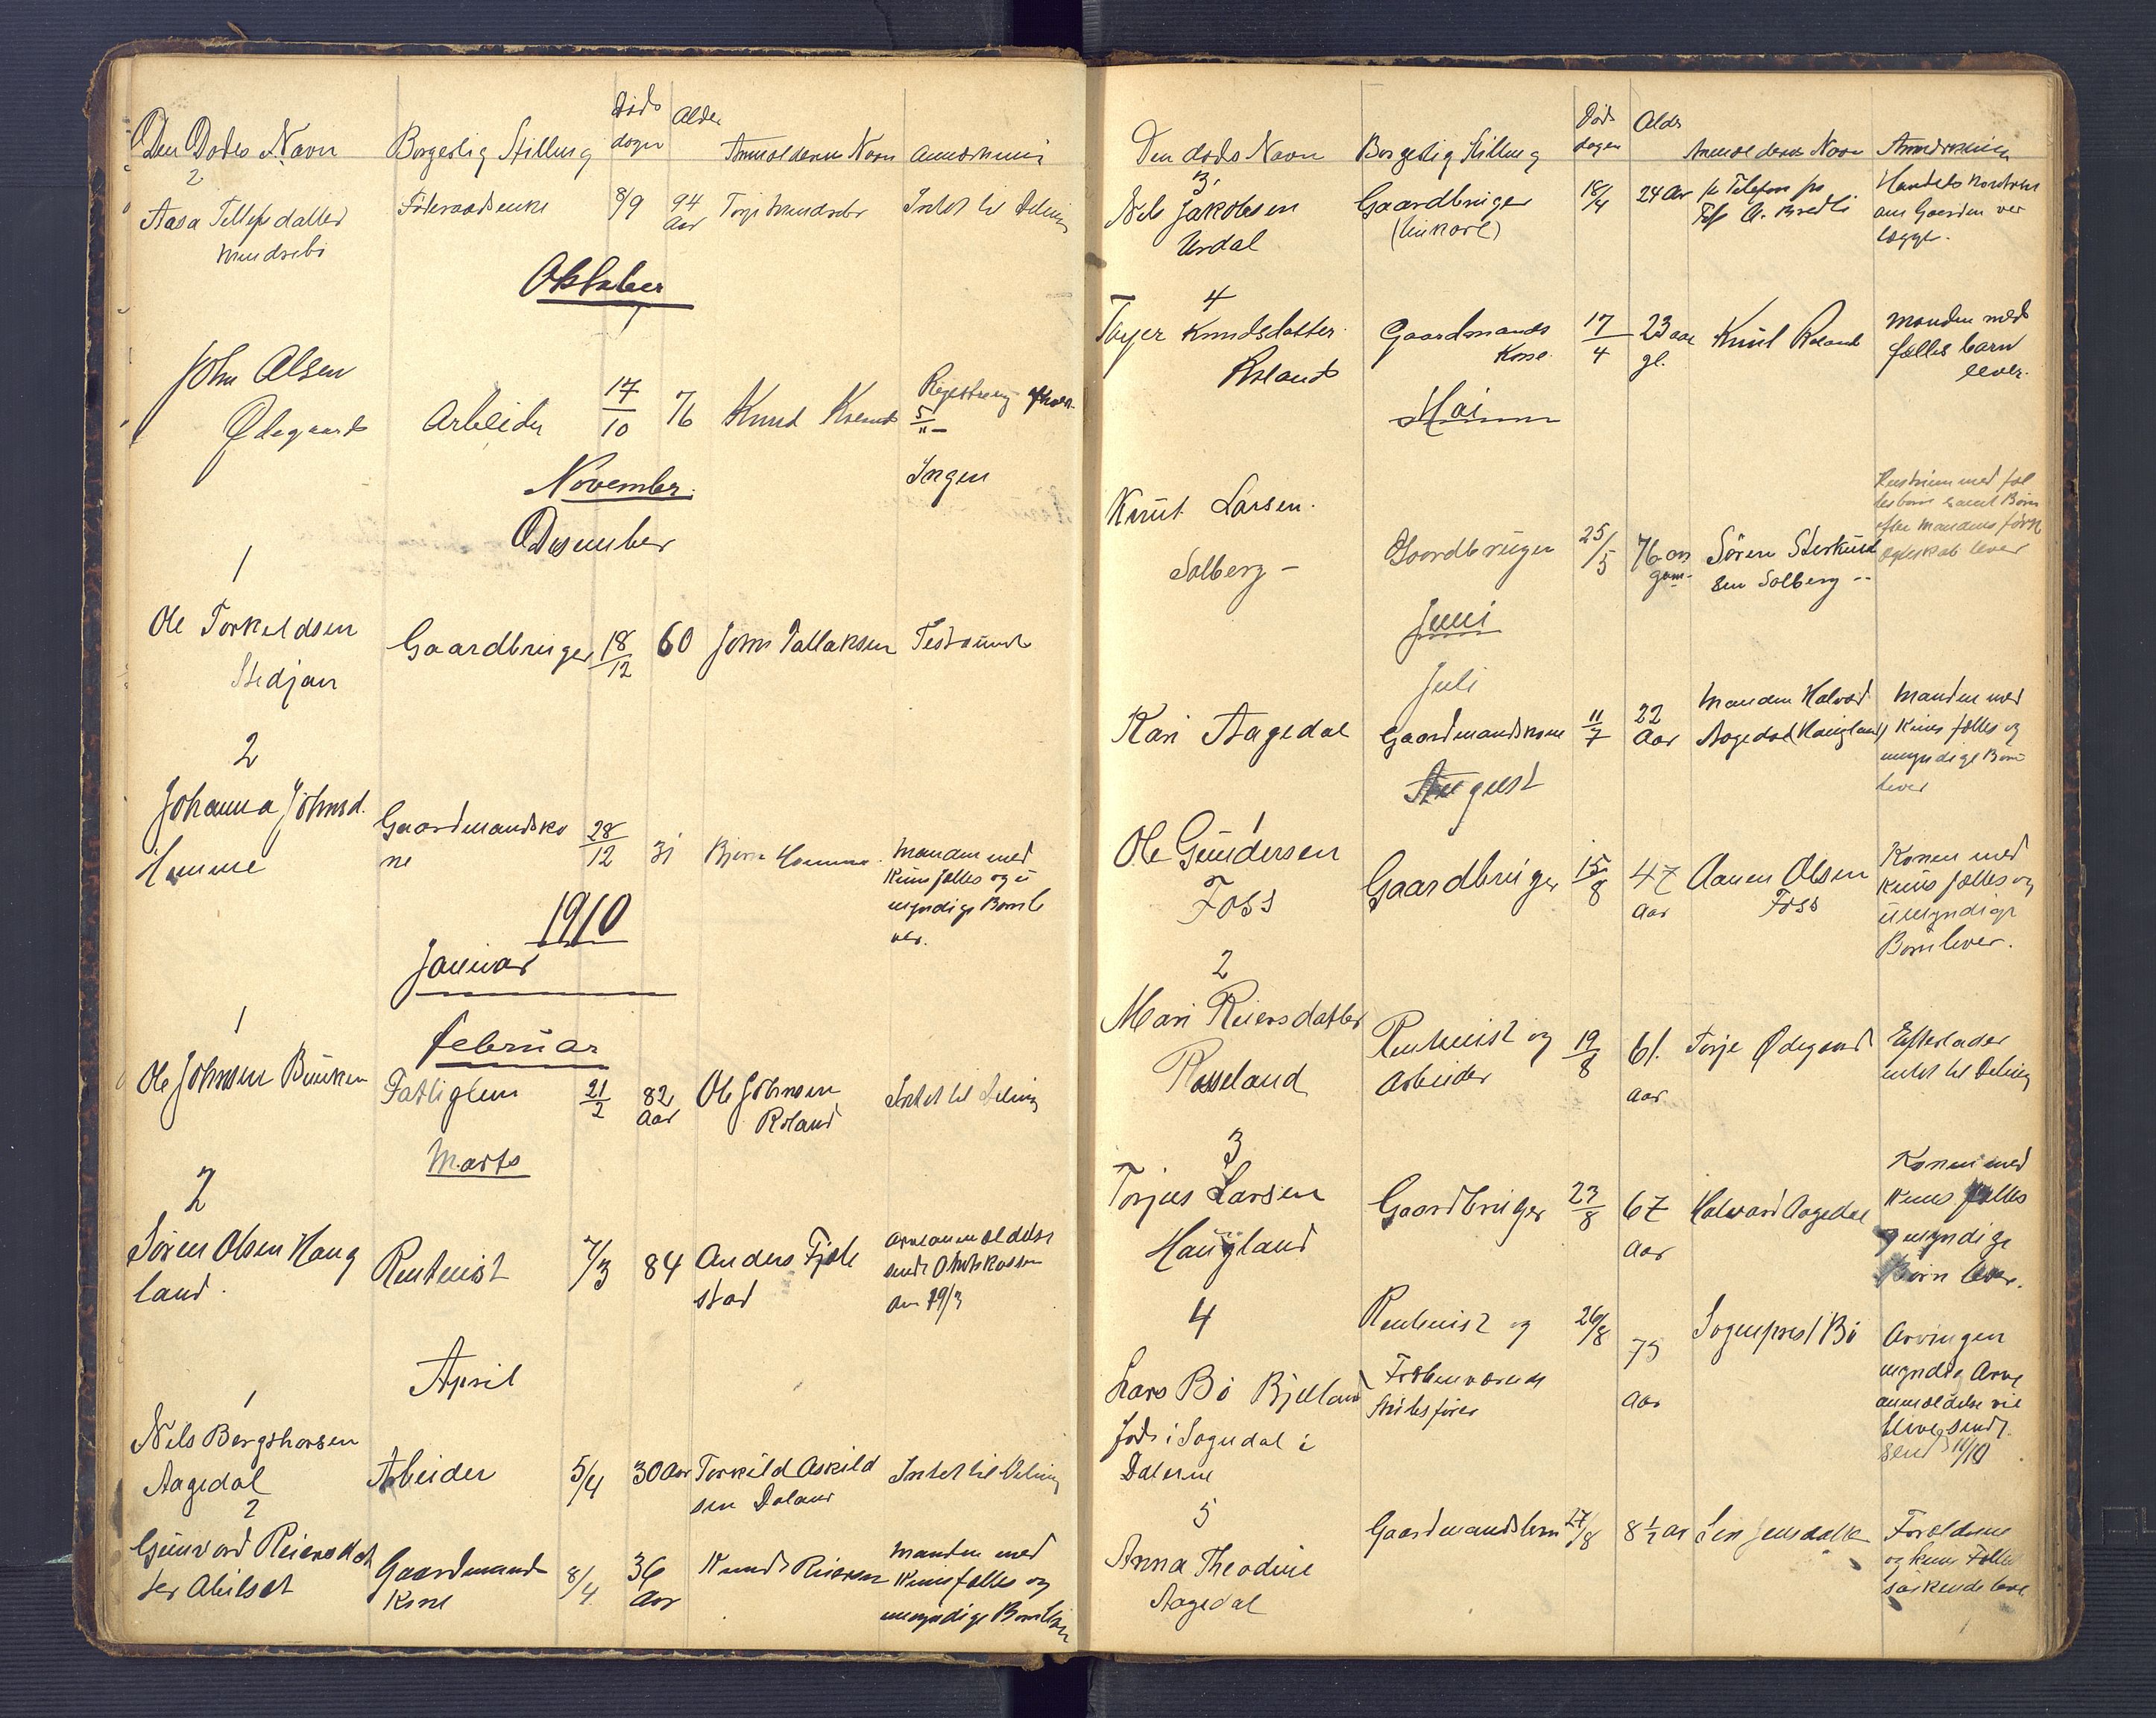 Den Dødes Navn Borgerlig Stilling Døds dagen Alder Anmelderens Navn Anmerkning
2
Aasa Tellefsdatter Føderaadsenke 8/9 94 Aar Torje Mundsebø Intet til Deling
Mundsebø
Oktober
John Olsen
Ødegaard Arbeider 17/10 76 Knud Kvend Registrering afholdt 5/11 –
November Ingen
Desember
1
Ole Torkeldsen Gaardbruger 18/12 60 John Tallaksen Testament
Stedjan
2
Johanna Johnsd. Gaardmandsko 28/12 31 Bjørn Homme Manden med
Homme ne kuns fælles og u
myndige Børn le
ver.
1910
Januar
1 Februar
Ole Johnsen Buuken Fattiglem 21/2 82 Aar Ole Johnsen Intet til Deling
Roland
Marts
2
Søren Olsen Haug Rentenist 7/3 84 Anders Fjel Arveanmeldelse
land. stad sendt Amtskassen
den 19/3
April
1
Nils Bergthorsen
Aagedal Arbeider 5/4 30 Aar Torkild Askild Intet til Deling
sen Daland
2
Gunvord Reiersdat Gaardmands 8/4 36 Aar Knud Reiersen Manden med
ter Abilset Kone kuns fælles og
umyndige Børn lever
Den døds Navn Borgerlig Stilling Døds dagen Alder Anmelderens Navn Anmerkning
3.
Nils Jakobsen Gaardbruger 18/4 24 Aar pr Telefon fra
Urdal (Unkarl) om Gaarden ver
lægges.
4
Tayer Knudsdatter Gaardmands 17/4 23 aar Knut Roland Manden med
Roland Kone gl. fælles barn
lever.
Mai
Knut Larsen. Hustruen med fæl
lesbørn samt Børn
efter Mandens første
Solberg – Gaardbruger 25/5 76 aar Sören Sterkud Ægteskab lever
gam- sen Solberg --
Juni
Juli
Kari Aagedal Gaardmandskone 11/7 22 Aar Manden Halvord Manden med
Aagedal (Haugland) kuns fælles og
umyndige Børn
lever
August
1
Ole Gundersen Gaardbruger 15/8 47 Aar Aanen Olsen Konen med
Foss Foss kuns fælles og
umyndige
Børn lever.
2
Mari Reiersdatter Rentenist og 19/8 61. Aar Torje Ødegaard Efterlader
Rosseland Arbeider intet til Deling
3
Torjus Larsen Gaardbruger 23/8 67 Aar Halvard Aagedal Konen med
Haugland kuns fælles
og umyndige
Børn lever.
4 Rentenist og 26/8 75 Aar Sogneprest Bø Arvingen
Lars Bø Bjelland Forhenværende myndig Arve
født i Sogndal i Skibsfører anmeldelse vil
Dalerne blive sendt.
send 10/10
5
Anna Theodine Gaardmandsbarn 27/8 8 1/2 aar Forældrene
Aagedal og kuns Fælles
søskende lever